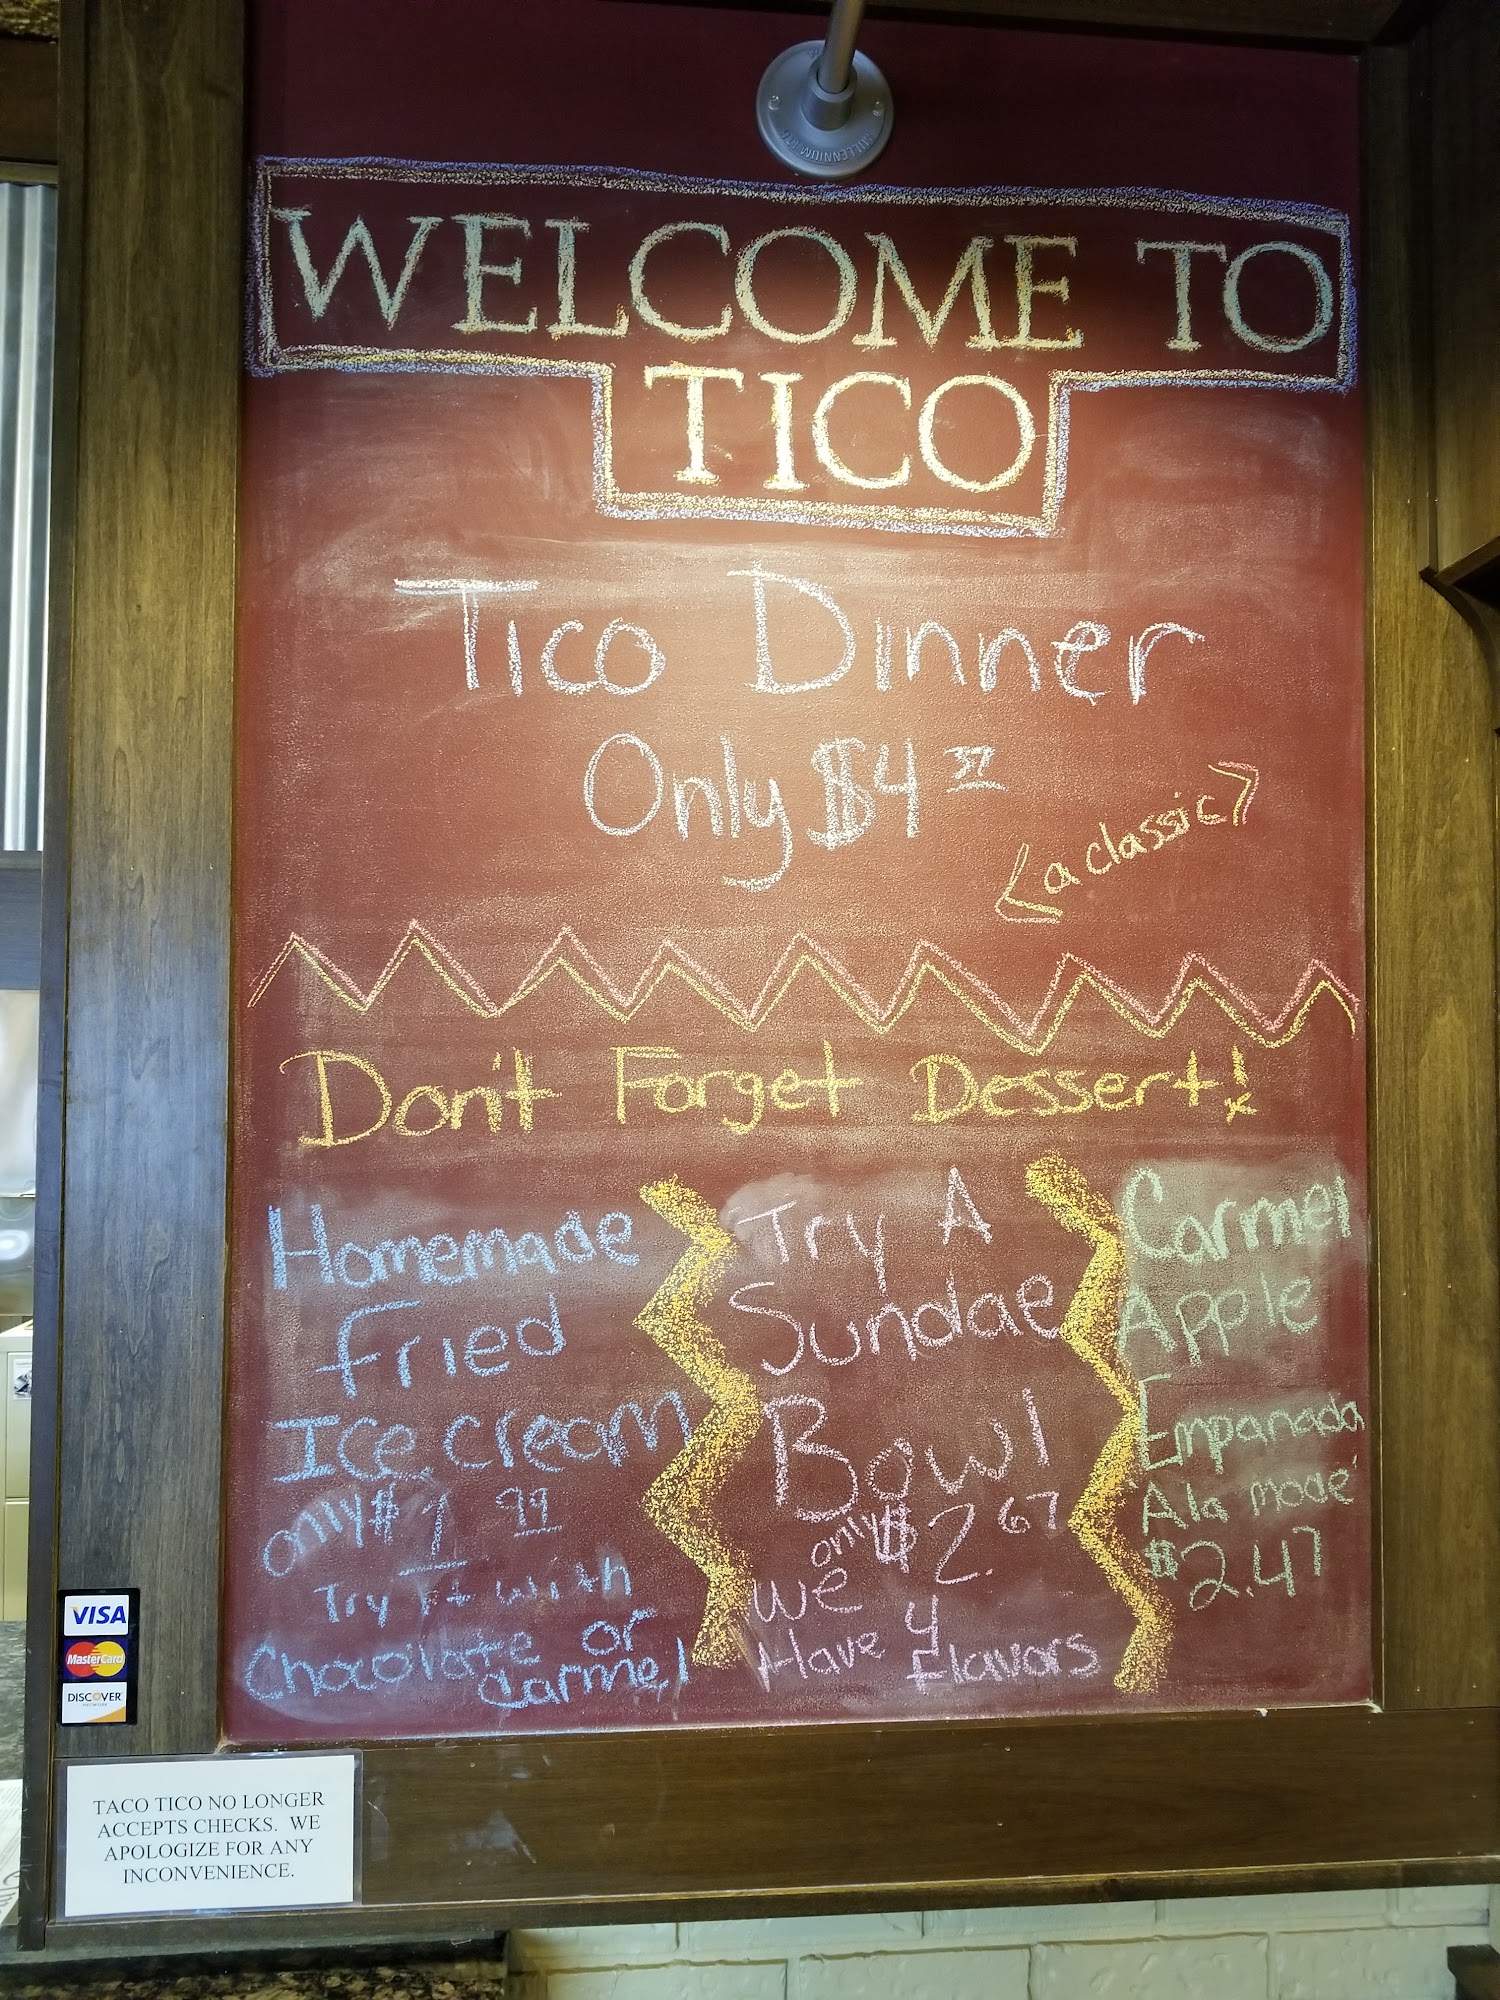 MILLENNIUM LTG
WELCOME TO
TICO
Tico Dinner
Only $4 37
a classic
Don't Forget Dessert!
Homemade
fried
Ice cream
only $1 99
Try it with
Chocolate or
Carmel
Try A
Sundae
Bowl
only $2.67
We
Have 4
flavors
Carmel
Apple
Empanada
Ala mode'
$2.47
VISA
MasterCard
DISCOVER
NETWORK
TACO TICO NO LONGER
ACCEPTS CHECKS. WE
APOLOGIZE FOR ANY
INCONVENIENCE.